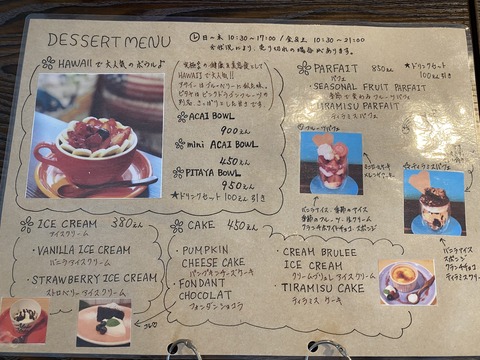 DESSERT MENU
日〜木 10:30~17:00 / 金土 10:30~21:00
HAWAIIで大人気のボウル♪
HAWAIIで大人気!!
ACAI BOWL
900えん
mini ACAI BOWL
450えん
PITAYA BOWL
950えん
★ドリンクセット 100えん引き
PARFAIT 830えん
パフェ
★ドリンクセット
100えん引き
SEASONAL FRUIT PARFAIT
TIRAMISU PARFAIT
ティラミスパフェ
フルーツパフェ
ティラミスパフェ
バニラアイス
スポンジ
ティラミスクリーム
ICE CREAM 380えん
アイスクリーム
・VANILLA ICE CREAM
バニラアイスクリーム
・STRAWBERRY ICE CREAM
ストロベリーアイスクリーム
CAKE 450えん
・PUMPKIN
CHEESE CAKE
パンプキンチーズケーキ
・FONDANT
CHOCOLAT
フォンダンショコラ
・CREAM BRULEE
ICE CREAM
クリームブリュレアイスクリーム
・TIRAMISU CAKE
ティラミスケーキ